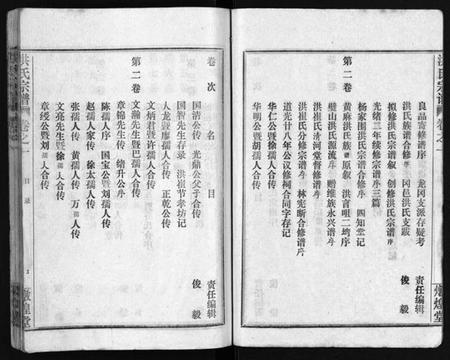 洪氏宗谱 卷之一
良品寄修谱序 龙冈支派存疑考
洪氏族谱合修序 冈邑洪氏支跋
拟修洪氏宗谱叙 创修洪氏宗谱序
光绪三年续修宗谱序三篇
杨家围洪氏宗谱序 四知堂记
黄麻洪氏族谱原叙 洪言咀二垮序
璧山洪氏源流序 赠维族永兴谱序
洪崔氏清河堂督修谱序
洪崔氏分修宗谱序 林宪断合修谱序
道光廿八年公议修祠合同字存记
第二卷
华仁公暨徐孺人合传
华明公暨胡孺人合传
责任编辑 俊毅
敦煌堂
卷次 名目
国清公传 光鼎公父子合传
国智先生存录 洪崔节孝坊记
人龙暨廖孺人合传 正乾公传
文炳君暨许孺人合传
文瀚先生暨巴孺人合传
章锦先生传 绪升公序
第二卷
陈孺人序 国宝公暨刘孺人合传
赵孺人家传 徐太孺人合传
张孺人传 黄孺人传 万孺人传
文亮先生暨徐孺人合传
章绶公暨刘孺人合传
责任编辑 俊毅
洪氏宗谱 卷之一 目录
敦煌堂